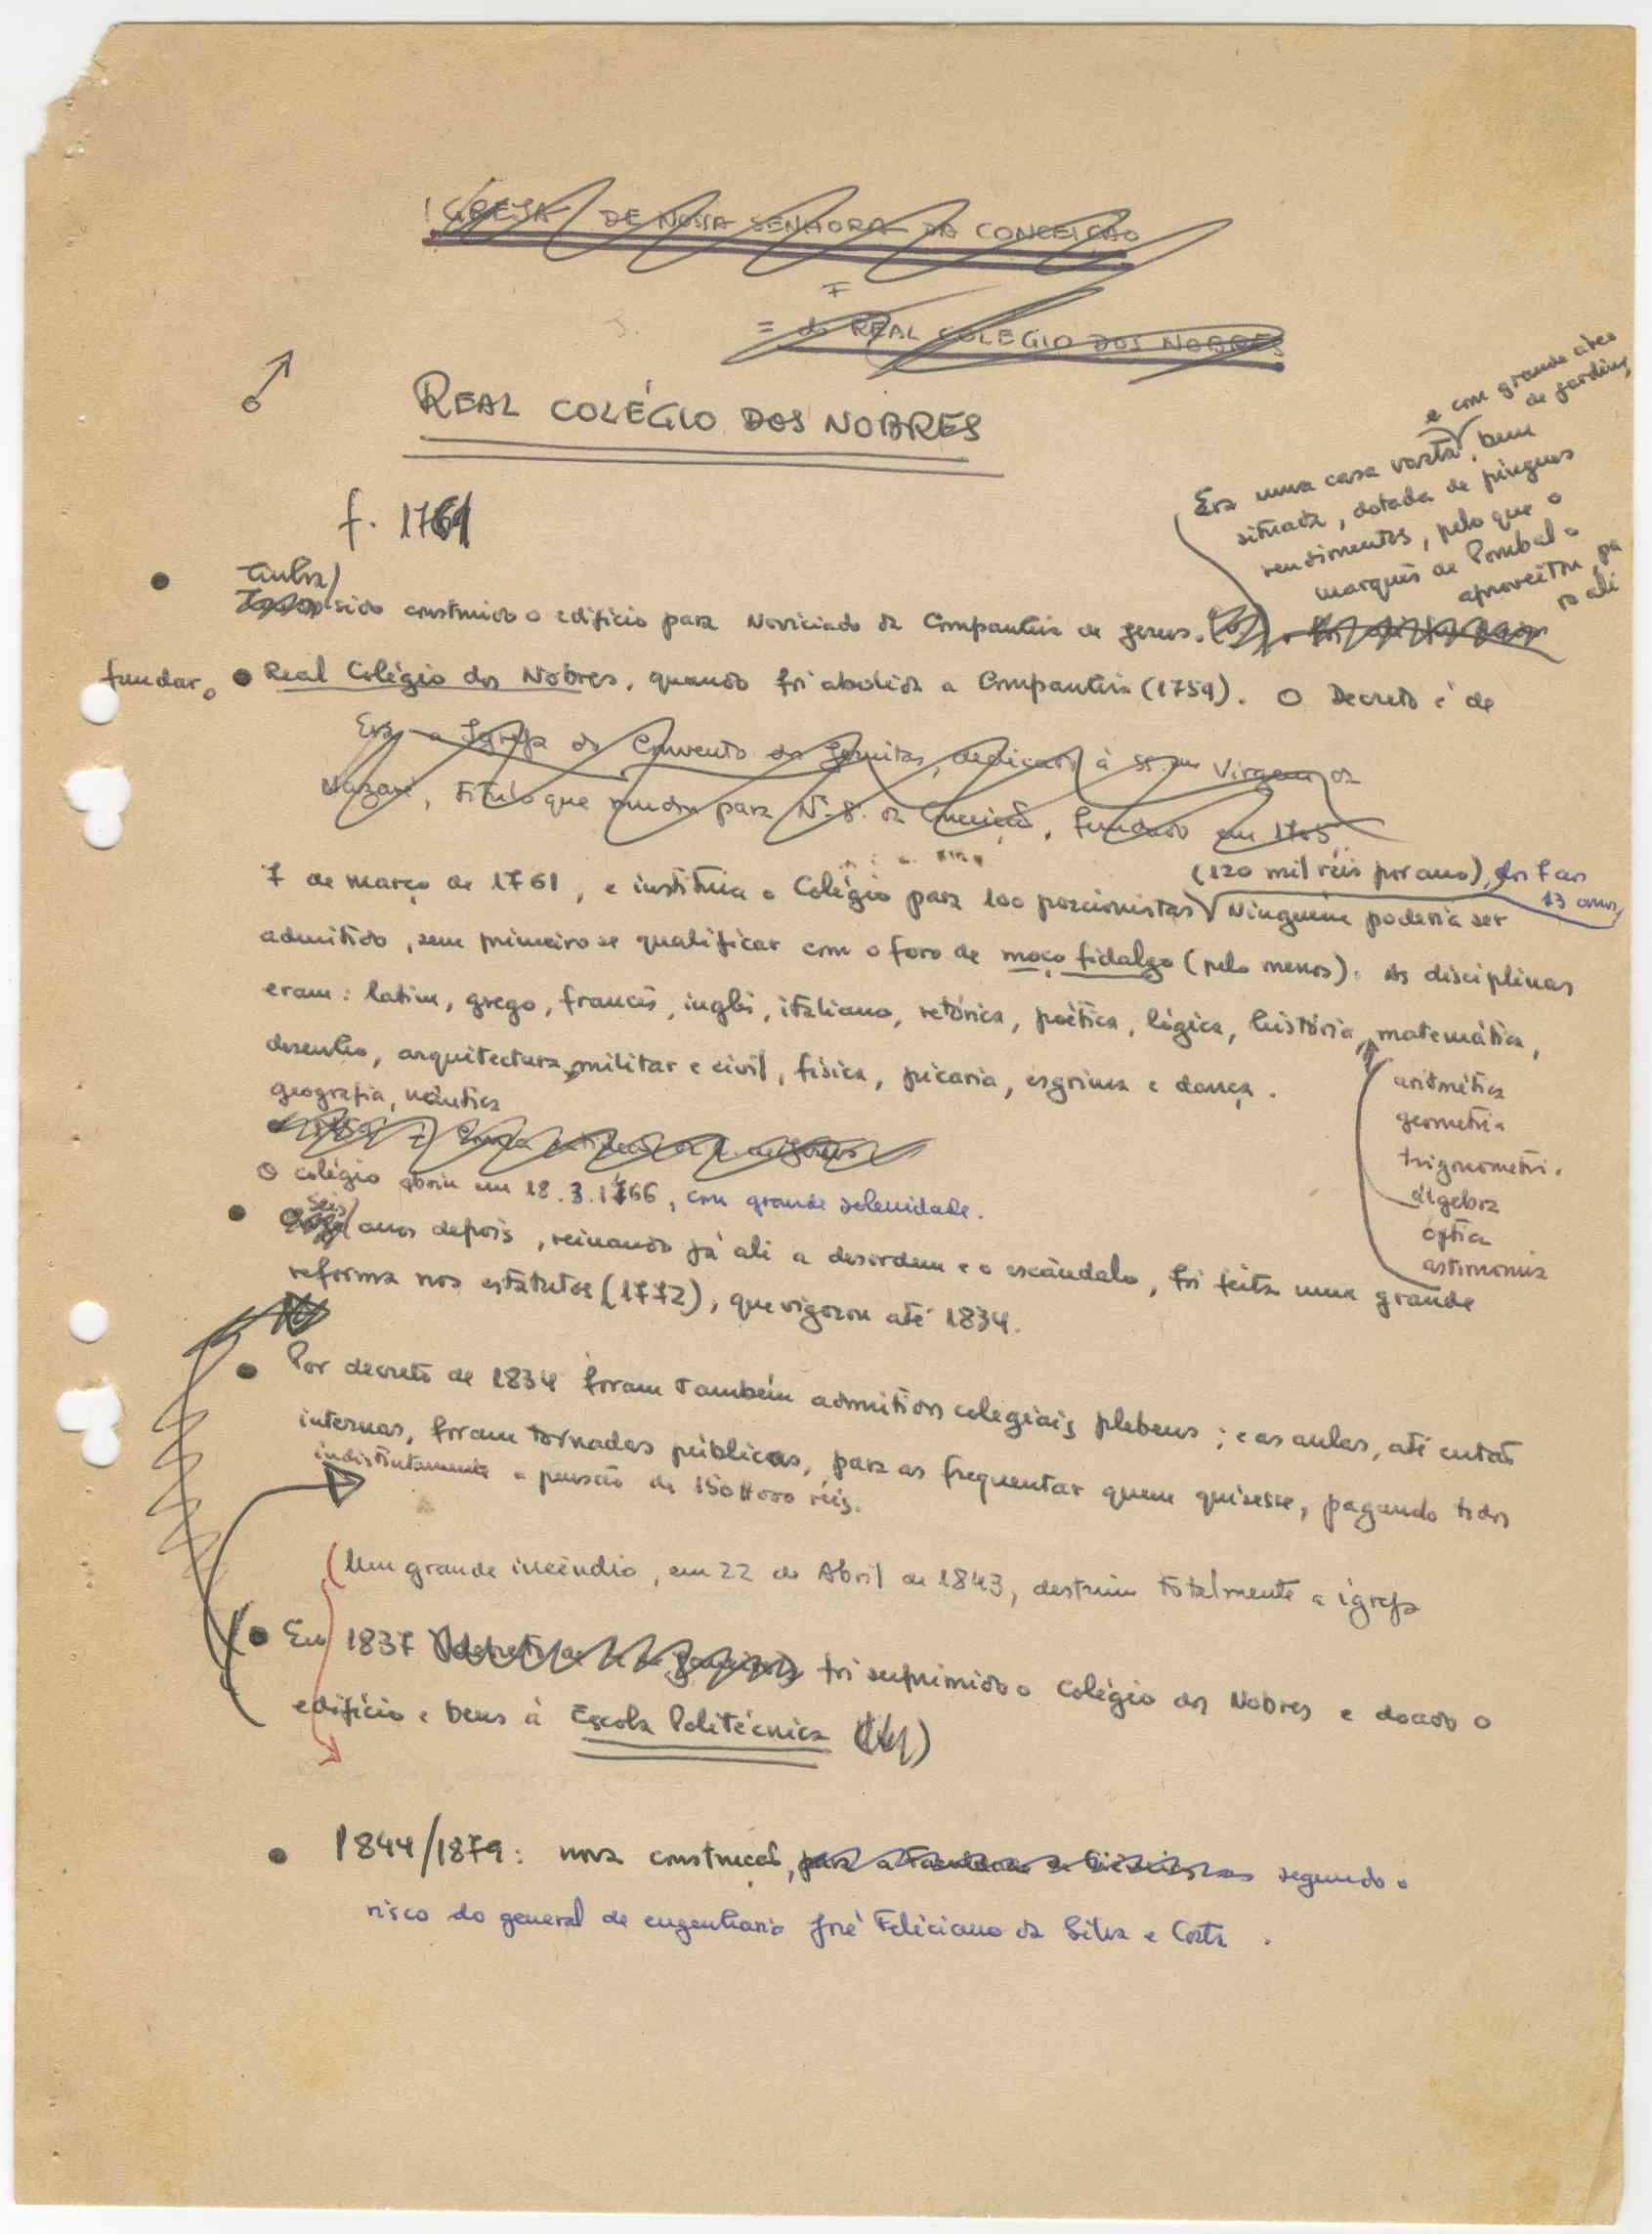 IGREJA DE NOSSA SENHORA DA CONCEIÇÃO
= do REAL COLEGIO DOS NOBRES
REAL COLÉGIO DOS NOBRES
f. 1761
e com grande área
de jardins,
Era uma casa vasta, bem
situada, dotada de pingues
rendimentos, pelo que o
marquês de Pombal o
aproveitou pa
ra ali
Tinha
sido construido o edifício para Noviciado da Companhia de Jesus.
fundar o Real Colégio dos Nobres, quando foi abolida a Companhia (1759). O Decreto é de
Era a Igreja do Convento dos Jesuitas, dedicado à SS.ma Virgem da
Nazaré, título que mudou para N. S. da Conceição, fundado em 1705.
(120 mil réis por ano), dos 7 aos
13 anos,
7 de março de 1761, e instituia o Colégio para 100 porcionistas Ninguém poderia ser
admitido, sem primeiro se qualificar com o foro de moço fidalgo (pelo menos). As disciplinas
eram: latim, grego, francês, inglês, italiano, retórica, poética, lógica, história, matemática,
desenho, arquitectura militar e civil, física, picaria, esgrima e dança.
geografia, náutica
aritmética
geometria
trigonometria
álgebra
óptica
astronomia
O colégio abriu em 18.3.1766, com grande solenidade.
Seis
anos depois, reinando já ali a desordem e o escândalo, foi feita uma grande
reforma nos estatutos (1772), que vigorou até 1834.
Por decreto de 1834 foram também admitidos colegiais plebeus; e as aulas, até então
internas, foram tornadas públicas, para as frequentar quem quisesse, pagando todos
indistintamente a pensão de 150#000 réis.
(Um grande incêndio, em 22 de Abril de 1843, destruiu totalmente a igreja
Em 1837 foi suprimido o Colégio dos Nobres e doado o
edifício e bens à Escola Politécnica
1844/1879: nova construção, para a Faculdade de Ciências segundo o
risco do general de engenharia José Feliciano da Silva e Costa.